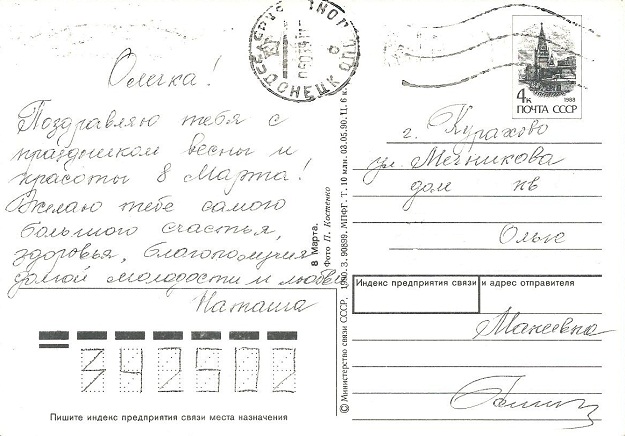 Олечка!
Поздравляю тебя с
праздником весны и
красоты 8 Марта!
Желаю тебе самого
большого счастья,
здоровья, благополучия,
долгой молодости и любви.
Наташа
Пишите индекс предприятия связи места назначения
8 Марта.
Фото П. Костенко
© Министерство связи СССР, 1990. З. 90899. МПФГ. Т. 10 млн. 03.05.90. Ц. 6 к.
ДОНЕЦК
4к
1988
ПОЧТА СССР
г. Курахово
ул. Мечникова
дом кв
Ольге
Индекс предприятия связи и адрес отправителя
Макеевка
342502